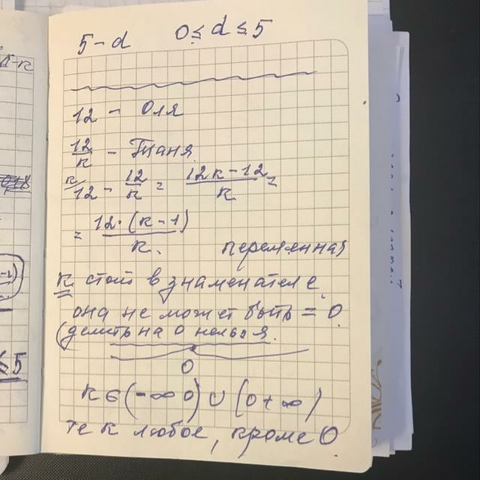 5 - d 0 ≤ d ≤ 5
12 - Оля
12/к - Таня
к/12 - 12/к = 12к-12/к =
= 12·(к-1)/к. переменная
к стоит в знаменателе,
она не может быть = 0
(делить на 0 нельзя.
0
к ∈ (-∞ 0) ∪ (0 +∞)
те к любое, кроме 0
≤5